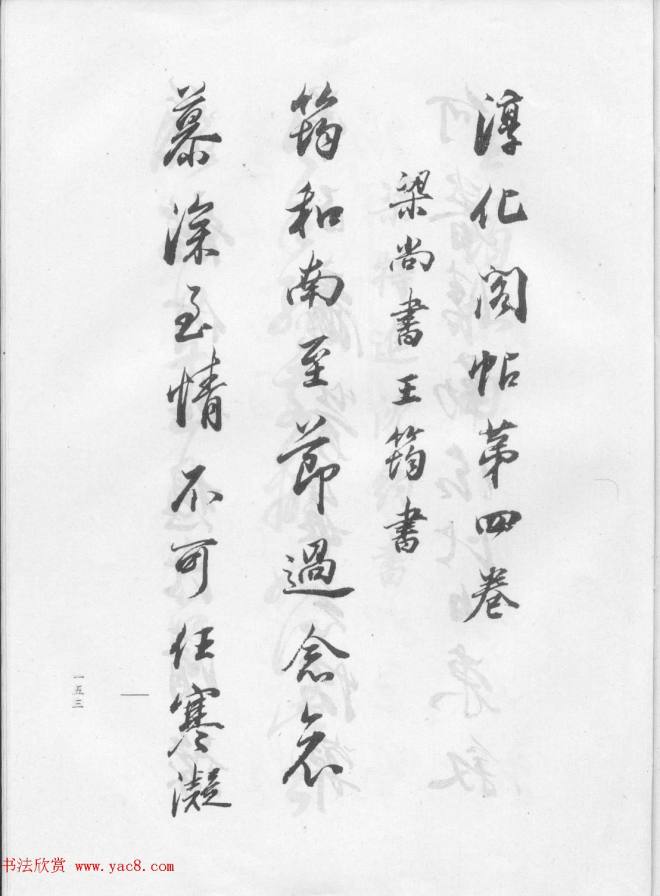 淳化阁帖第四卷
梁尚書王筠書
筠和南至節過念哀
慕深至情不可任寒凝
一五三
书法欣赏 www.yac8.com